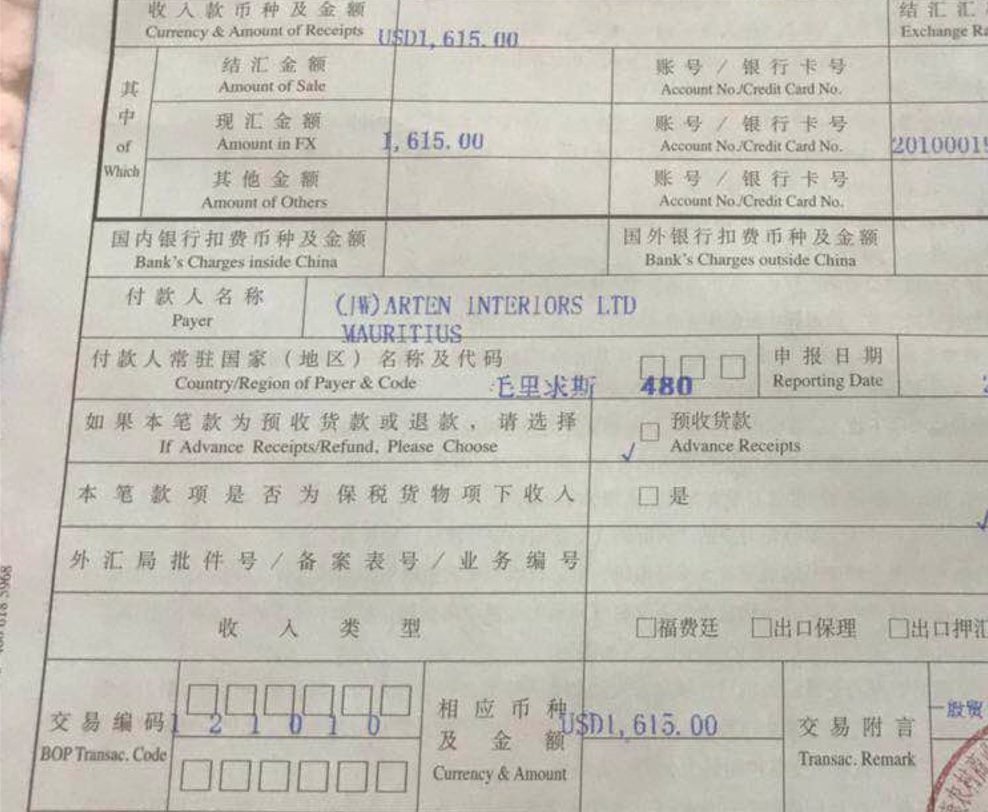 收入款币种及金额
Currency & Amount of Receipts
USD1,615.00
结汇汇
Exchange Ra
其中
of
Which
结汇金额
Amount of Sale
账号/银行卡号
Account No./Credit Card No.
现汇金额
Amount in FX
1,615.00
账号/银行卡号
Account No./Credit Card No.
2010001
其他金额
Amount of Others
账号/银行卡号
Account No./Credit Card No.
国内银行扣费币种及金额
Bank's Charges inside China
国外银行扣费币种及金额
Bank's Charges outside China
付款人名称
Payer
(JW)ARTEN INTERIORS LTD
MAURITIUS
付款人常驻国家(地区)名称及代码
Country/Region of Payer & Code
毛里求斯
480
申报日期
Reporting Date
如果本笔款为预收货款或退款,请选择
If Advance Receipts/Refund, Please Choose
√
□ 预收货款
Advance Receipts
本笔款项是否为保税货物项下收入
□ 是
√
外汇局批件号/备案表号/业务编号
收入类型
□福费廷 □出口保理 □出口押汇
交易编码
BOP Transac. Code
121010
相应币种
及金额
Currency & Amount
USD1,615.00
交易附言
Transac. Remark
一般贸